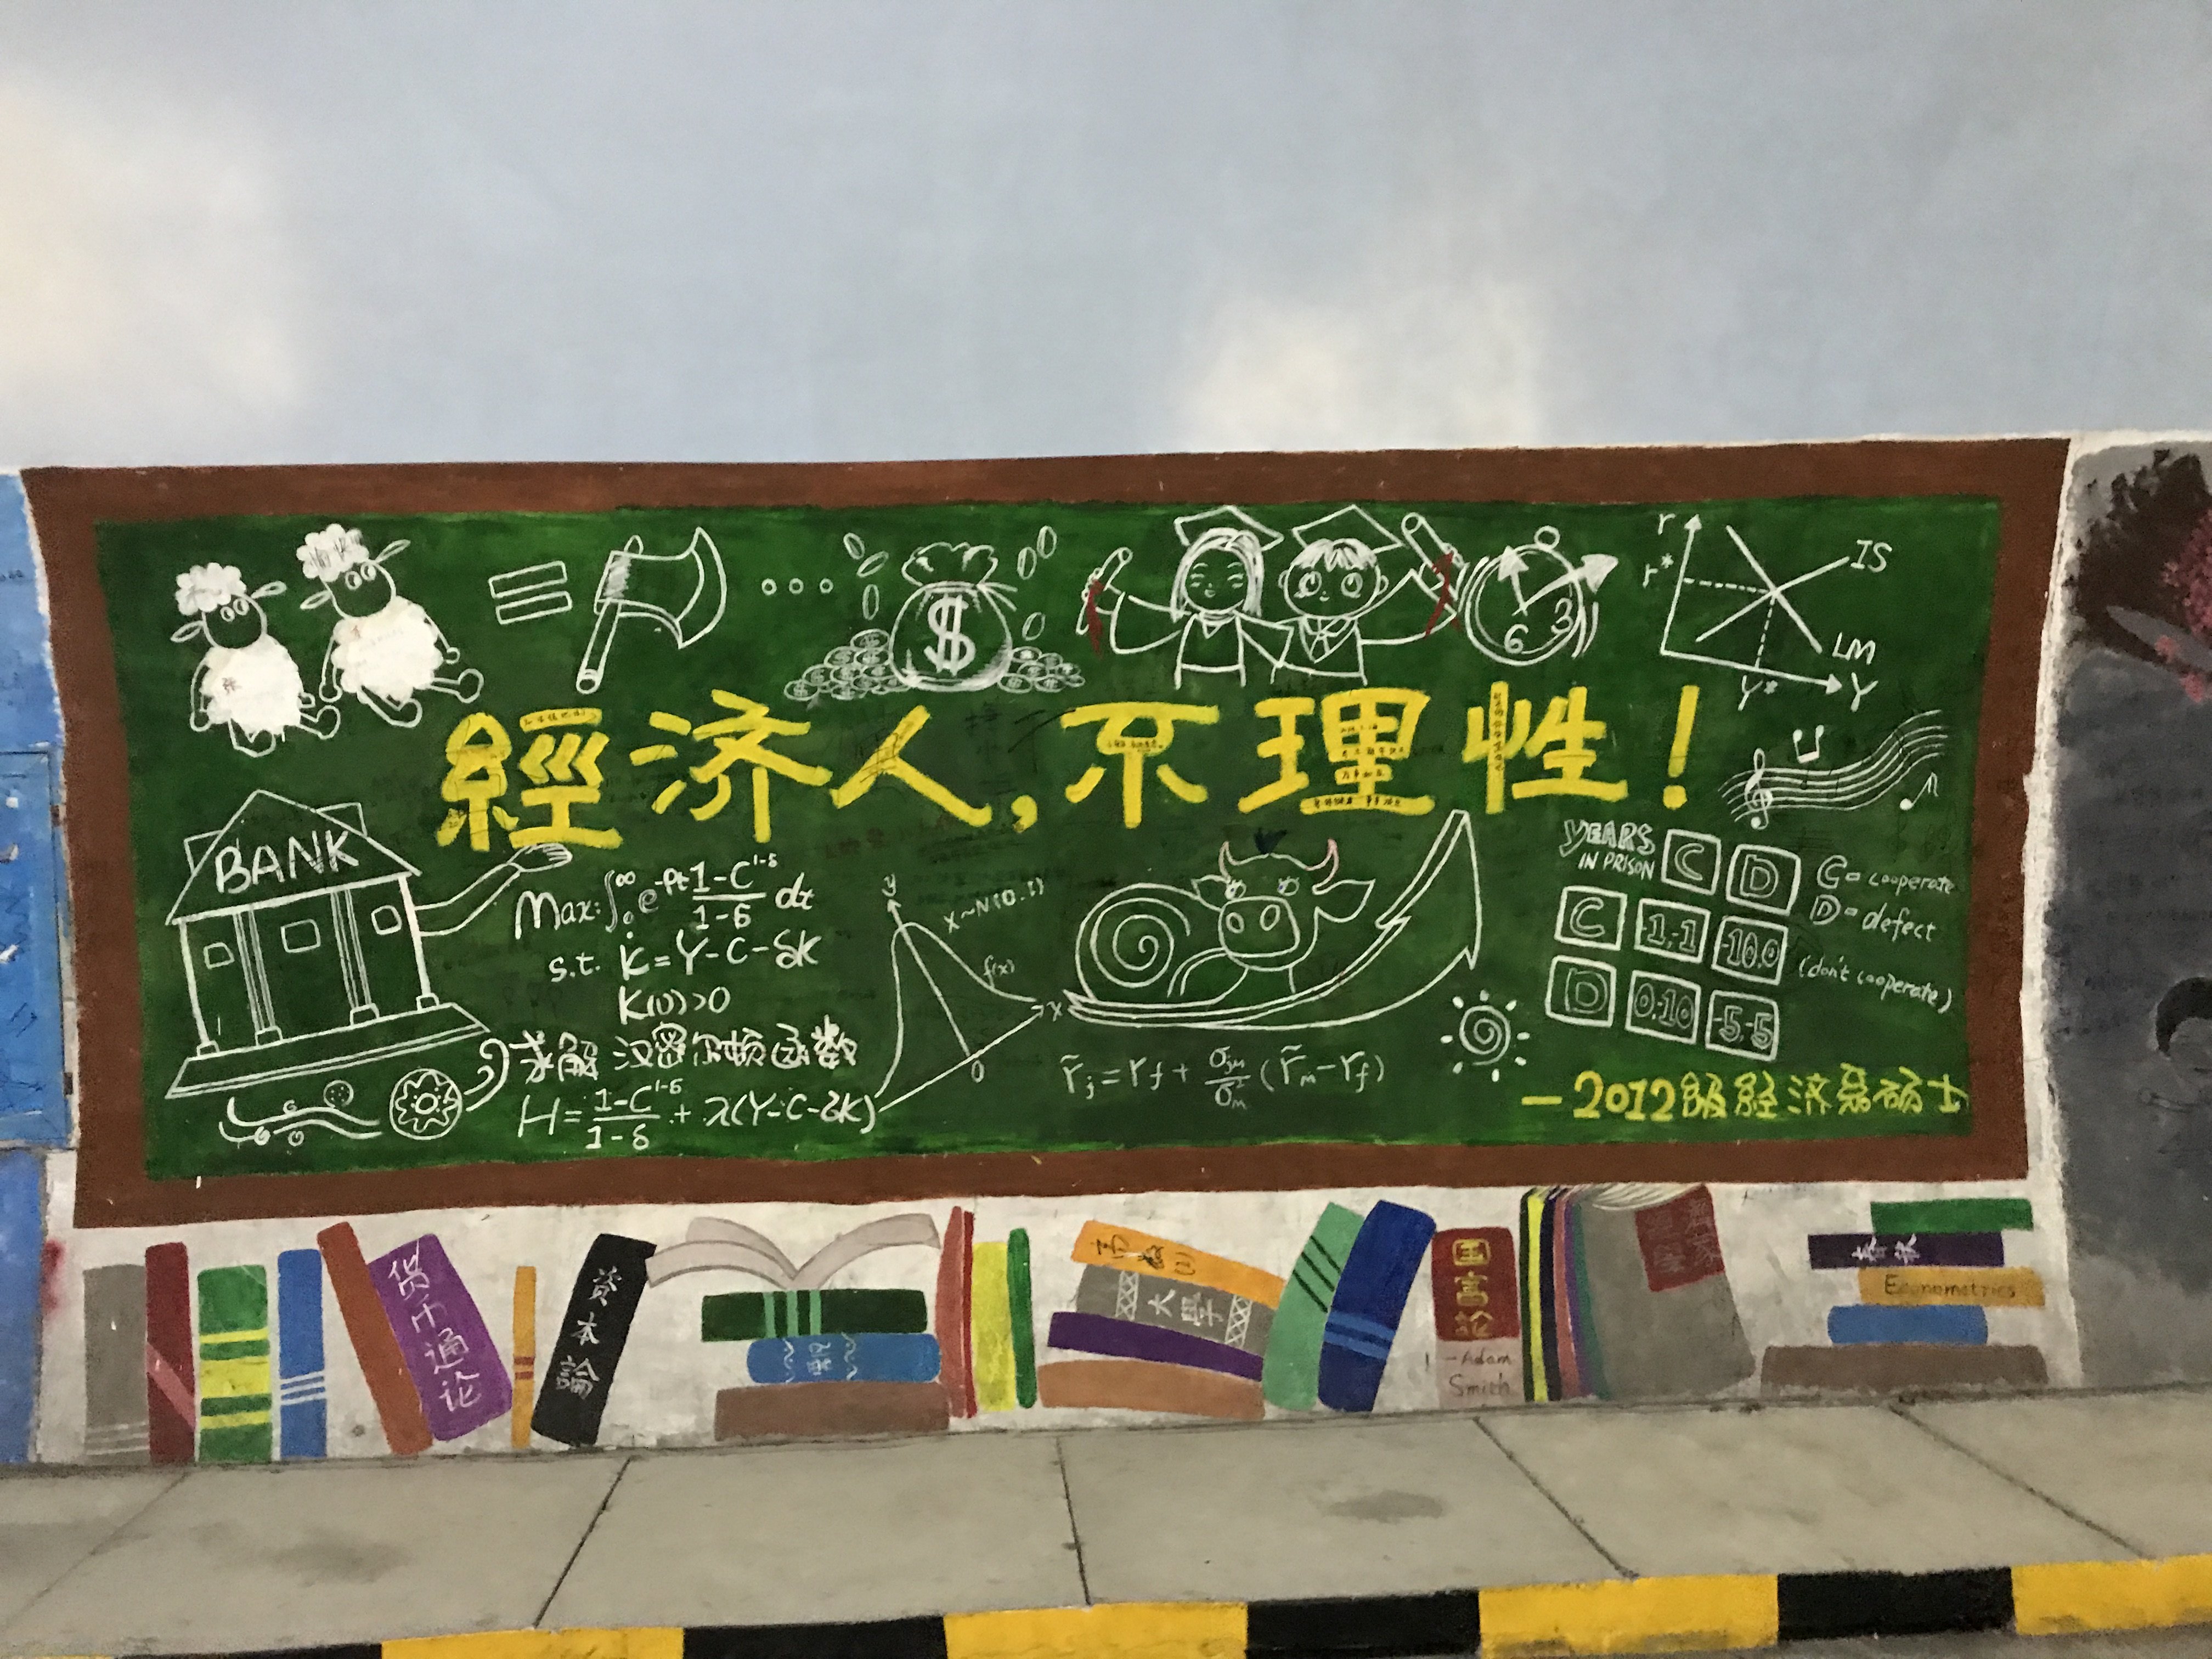 $
6 3
r
r*
IS
LM
Y*
Y
經济人,不理性!
BANK
Max: ∫₀^∞ e^-ρt (1-C^1-δ)/(1-δ) dt
s.t. K̇=Y-C-δK
K(0)>0
求解汉密尔顿函数
H=(1-C^1-δ)/(1-δ)+λ(Y-C-δK)
y
X~N(0.1)
f(x)
x
0
r̃j=rf+σjm/σ²m(r̃m-rf)
YEARS
IN PRISON
C D
C -1,-1 -10,0
D 0,-10 -5,-5
C=cooperate
D=defect
(don't cooperate)
—2012级經济系硕士
货币通论
資本論
高数
大學
国富论
-Adam
Smith
春秋
Econometrics